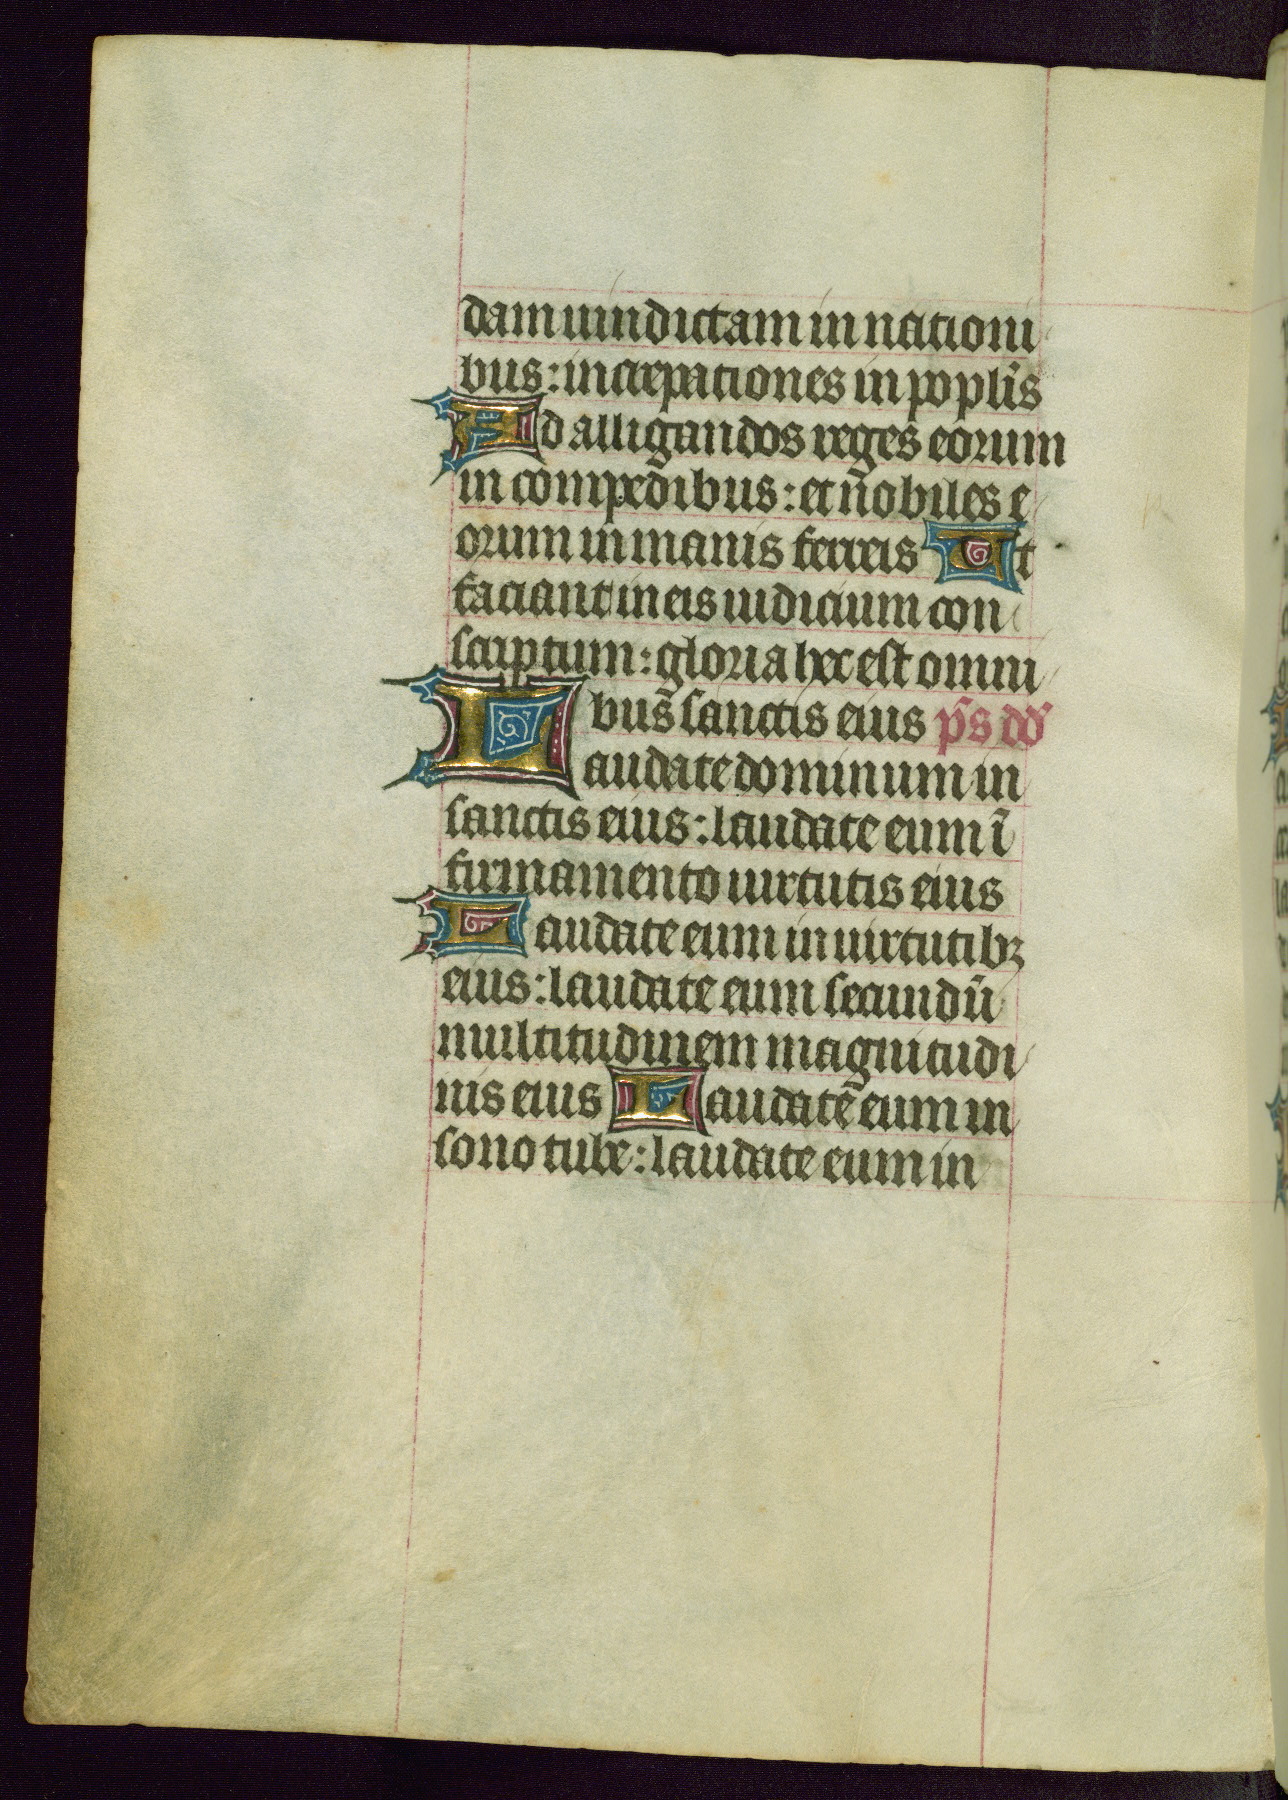 dam uindictam in nationi
bus: increpationes in popl̄is
Ad alligandos reges eorum
in compedibus: et nobiles e
orum in manis ferreis Ut
faciant in eis iudicium con
scriptum: gloria hec est omni
bus sanctis eius p̄s dd̄
Laudate dominum in
sanctis eius: laudate eum ī
firmamento uirtutis eius
Laudate eum in uirtutibꝫ
eius: laudate eum secundū
multitudinem magnitudi
nis eius Laudate eum in
sono tube: laudate eum in